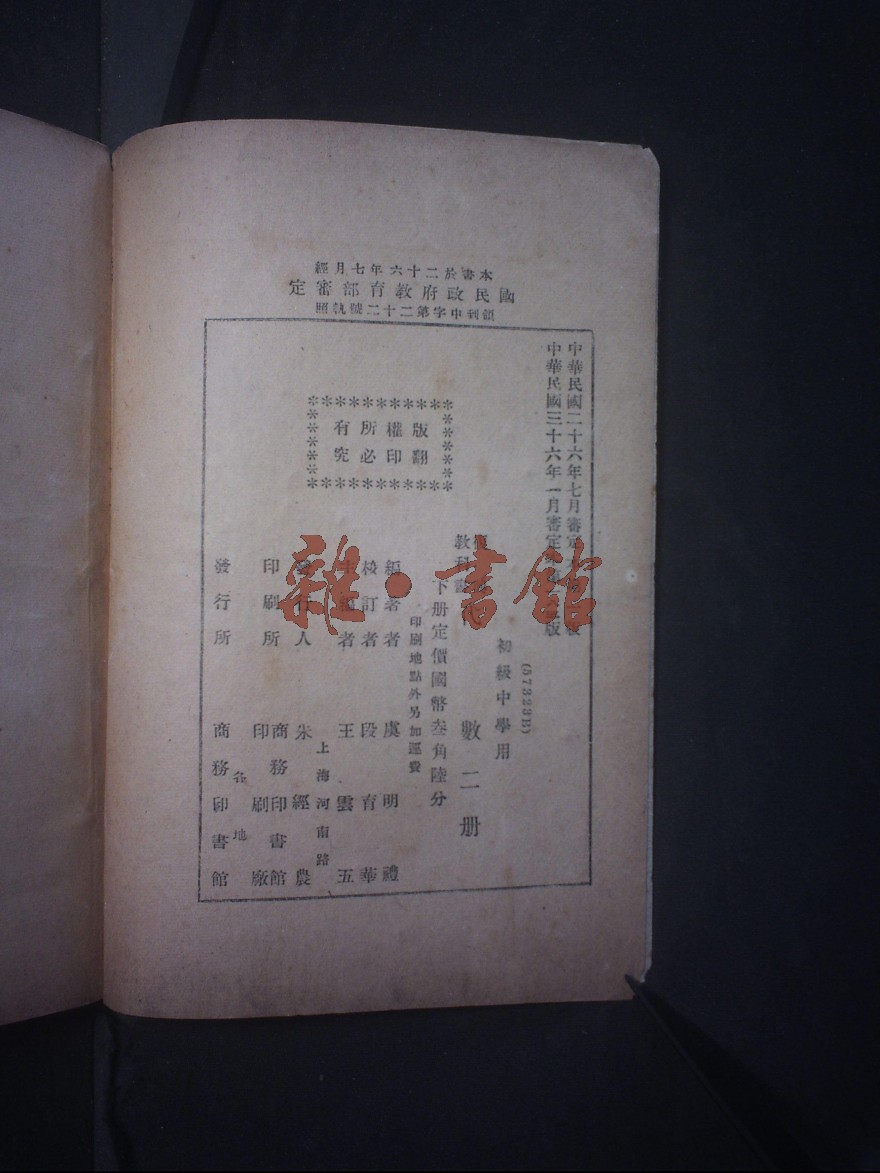 本書於二十六年七月經
國民政府教育部審定
領到中字第二十二號執照
中華民國二十六年七月審定
中華民國三十六年一月審定
版
(57323B)
初級中學用
教科書
數二册
下册定價國幣叁角陸分
印刷地點外另加運費
版權所有
翻印必究
編著者 虞明禮
校訂者 段育華
者 王雲五
上海河南路
人 朱經農
印刷所 商務印書館
印刷廠
各地
發行所 商務印書館
雜·書館